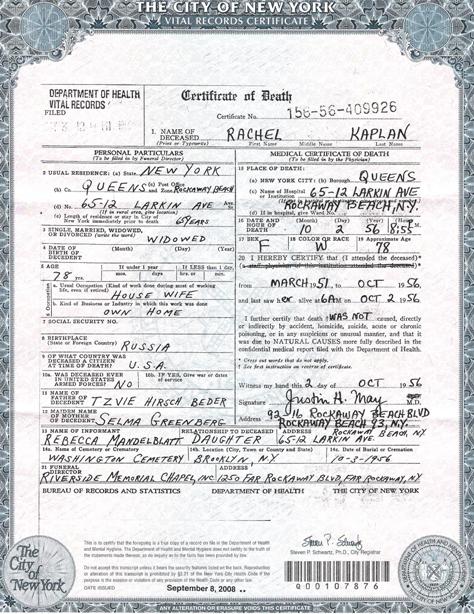 THE CITY OF NEW YORK
VITAL RECORDS CERTIFICATE
DEPARTMENT OF HEALTH
VITAL RECORDS
FILED
Certificate of Death
Certificate No. 156-56-409926
1. NAME OF DECEASED RACHEL KAPLAN
(Print or Typewrite) First Name Middle Name Last Name
PERSONAL PARTICULARS
(To be filled in by Funeral Director)
2 USUAL RESIDENCE: (a) State NEW YORK
(b) Co. QUEENS (c) Post Office and Zone ROCKAWAY BEACH
(d) No. 65-12 LARKIN AVE
(If in rural area, give location)
(e) Length of residence or stay in City of New York immediately prior to death 65 YEARS
3 SINGLE, MARRIED, WIDOWED, OR DIVORCED (write the word) WIDOWED
4 DATE OF BIRTH OF DECEDENT (Month) (Day) (Year)
5 AGE 78 yrs. If under 1 year mos. days If LESS than 1 day, hrs. or min.
6 Occupation
a. Usual Occupation (Kind of work done during most of working life, even if retired) HOUSE WIFE
b. Kind of Business or Industry in which this work was done
OWN HOME
7 SOCIAL SECURITY NO.
8 BIRTHPLACE (State or Foreign Country) RUSSIA
9 OF WHAT COUNTRY WAS DECEASED A CITIZEN AT TIME OF DEATH? U.S.A.
10a. WAS DECEASED EVER IN UNITED STATES ARMED FORCES? NO 10b. IF YES, Give war or dates of service
11 NAME OF FATHER OF DECEDENT TZVIE HIRSCH BEDER
12 MAIDEN NAME OF MOTHER OF DECEDENT SELMA GREENBERG
MEDICAL CERTIFICATE OF DEATH
(To be filled in by the Physician)
15 PLACE OF DEATH:
(a) NEW YORK CITY: (b) Borough QUEENS
(c) Name of Hospital or Institution 65-12 LARKIN AVE
ROCKAWAY BEACH, N.Y.
(d) If in hospital, give Ward No.
16 DATE AND HOUR OF DEATH (Month) 10 (Day) 2 (Year) 56 (Hour)
17 SEX F 18 COLOR OR RACE W 19 Approximate Age 78
20 I HEREBY CERTIFY that (I attended the deceased)*
(a staff physician of this institution attended the deceased)*
from MARCH 1951 to OCT 1956
and last saw her alive at 6AM on OCT 2 1956
I further certify that death WAS NOT caused, directly
or indirectly by accident, homicide, suicide, acute or chronic
poisoning, or in any suspicious or unusual manner, and that it
was due to NATURAL CAUSES more fully described in the
confidential medical report filed with the Department of Health.
* Cross out words that do not apply.
* See first instruction on reverse of certificate.
Witness my hand this 2 day of OCT 1956
Signature Justin H. May M.D.
Address 92-16 ROCKAWAY BEACH BLVD
ROCKAWAY BEACH 93, N.Y.
13 NAME OF INFORMANT RELATIONSHIP TO DECEASED ADDRESS ROCKAWAY BEACH, NY
REBECCA MANDELBLATT DAUGHTER 65-12 LARKIN AVE.
14a. Name of Cemetery or Crematory 14b. Location (City, Town or County and State) 14c. Date of Burial or Cremation
WASHINGTON CEMETERY BROOKLYN, N.Y. 10-3-1956
21 FUNERAL DIRECTOR ADDRESS
RIVERSIDE MEMORIAL CHAPEL, INC 1250 FAR ROCKAWAY BLVD, FAR ROCKAWAY, NY
BUREAU OF RECORDS AND STATISTICS DEPARTMENT OF HEALTH THE CITY OF NEW YORK
This is to certify that the foregoing is a true copy of a record on file in the Department of Health
and Mental Hygiene. The Department of Health and Mental Hygiene does not certify to the truth
of the statements made thereon, as no inquiry as to the facts has been provided by law.
Steven P. Schwartz, Ph.D., City Registrar
Do not accept this transcript unless it bears the security features listed on the back. Reproduction
or alteration of this transcript is prohibited by §3.21 of the New York City Health Code if the
purpose is the evasion or violation of any provision of the Health Code or any other law.
DATE ISSUED September 8, 2008
Q00107876
The City of New York
ANY ALTERATION OR ERASURE VOIDS THIS CERTIFICATE